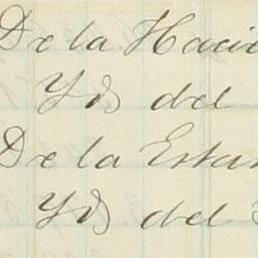 De la Haci
Yd del
De la Estan
Yd del